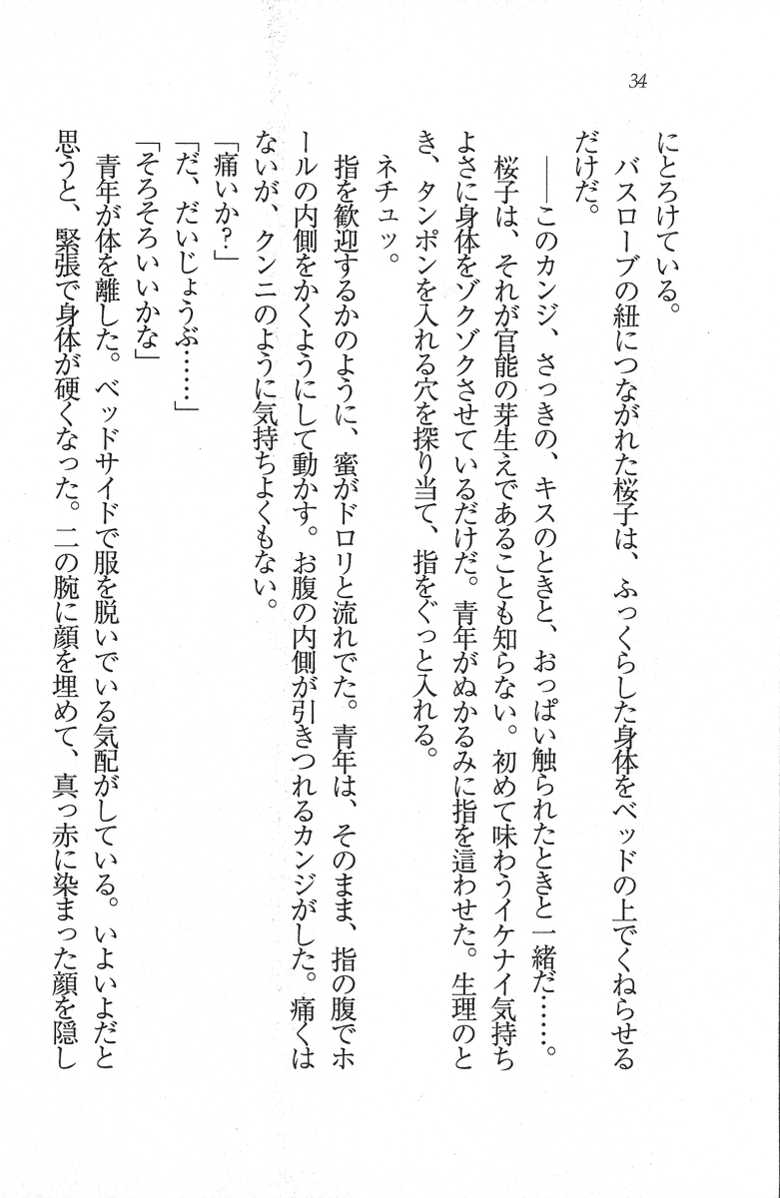 34
にとろけている。
バスローブの紐につながれた桜子は、ふっくらした身体をベッドの上でくねらせる
だけだ。
――このカンジ、さっきの、キスのときと、おっぱい触られたときと一緒だ……。
桜子は、それが官能の芽生えであることも知らない。初めて味わうイケナイ気持ち
よさに身体をゾクゾクさせているだけだ。青年がぬかるみに指を這わせた。生理のと
き、タンポンを入れる穴を探り当て、指をぐっと入れる。
ネチュッ。
指を歓迎するかのように、蜜がドロリと流れでた。青年は、そのまま、指の腹でホ
ールの内側をかくようにして動かす。お腹の内側が引きつれるカンジがした。痛くは
ないが、クンニのように気持ちよくもない。
「痛いか?」
「だ、だいじょうぶ……」
「そろそろいいかな」
青年が体を離した。ベッドサイドで服を脱いでいる気配がしている。いよいよだと
思うと、緊張で身体が硬くなった。二の腕に顔を埋めて、真っ赤に染まった顔を隠し